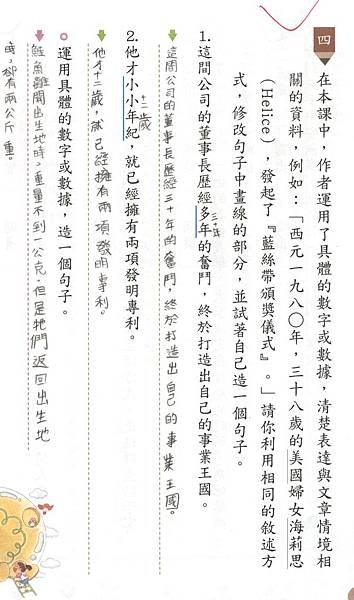 四
在本課中,作者運用了具體的數字或數據,清楚表達與文章情境相
關的資料,例如:「西元一九八〇年,三十八歲的美國婦女海莉思
(Helice),發起了『藍絲帶頒獎儀式』。」請你利用相同的敘述方
式,修改句子中畫線的部分,並試著自己造一個句子。
三十年
1.這間公司的董事長歷經多年的奮鬥,終於打造出自己的事業王國。
這間公司的董事長歷經三十年的奮鬥,終於打造出自己的事業王國。
十二歲
2.他才小小年紀,就已經擁有兩項發明專利。
他才十二歲,就已經擁有兩項發明專利。
運用具體的數字或數據,造一個句子。
鮭魚離開出生地時,重量不到一公克,但是牠們返回出生地
時,卻有兩公斤重。